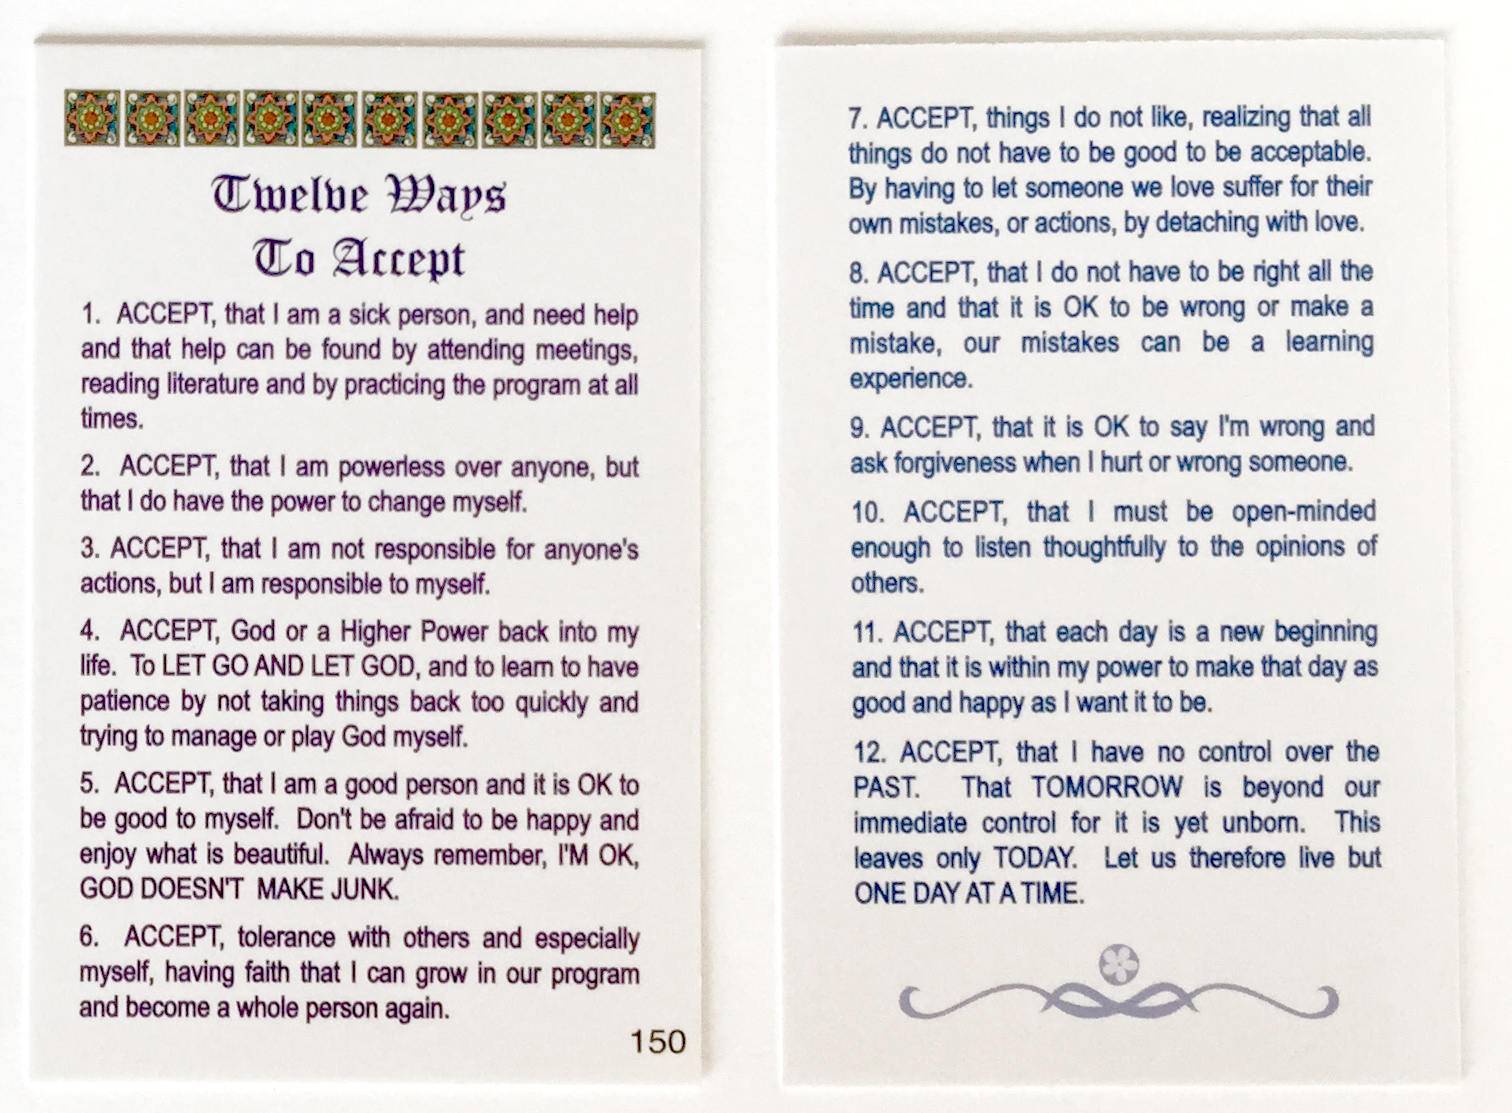 Twelve Ways
To Accept
1. ACCEPT, that I am a sick person, and need help
and that help can be found by attending meetings,
reading literature and by practicing the program at all
times.
2. ACCEPT, that I am powerless over anyone, but
that I do have the power to change myself.
3. ACCEPT, that I am not responsible for anyone's
actions, but I am responsible to myself.
4. ACCEPT, God or a Higher Power back into my
life. To LET GO AND LET GOD, and to learn to have
patience by not taking things back too quickly and
trying to manage or play God myself.
5. ACCEPT, that I am a good person and it is OK to
be good to myself. Don't be afraid to be happy and
enjoy what is beautiful. Always remember, I'M OK,
GOD DOESN'T MAKE JUNK.
6. ACCEPT, tolerance with others and especially
myself, having faith that I can grow in our program
and become a whole person again.
150
7. ACCEPT, things I do not like, realizing that all
things do not have to be good to be acceptable.
By having to let someone we love suffer for their
own mistakes, or actions, by detaching with love.
8. ACCEPT, that I do not have to be right all the
time and that it is OK to be wrong or make a
mistake, our mistakes can be a learning
experience.
9. ACCEPT, that it is OK to say I'm wrong and
ask forgiveness when I hurt or wrong someone.
10. ACCEPT, that I must be open-minded
enough to listen thoughtfully to the opinions of
others.
11. ACCEPT, that each day is a new beginning
and that it is within my power to make that day as
good and happy as I want it to be.
12. ACCEPT, that I have no control over the
PAST. That TOMORROW is beyond our
immediate control for it is yet unborn. This
leaves only TODAY. Let us therefore live but
ONE DAY AT A TIME.